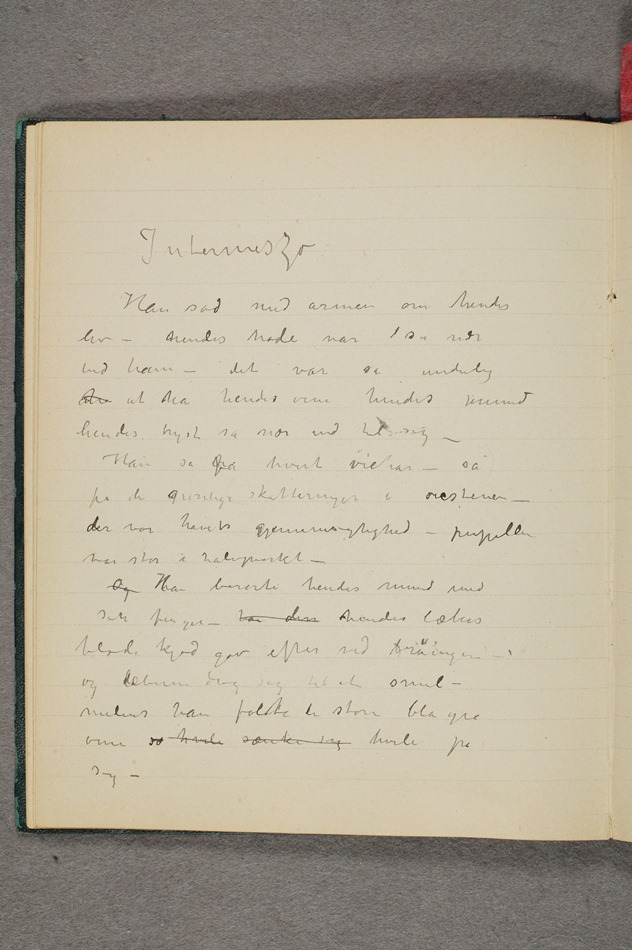 Intermeszo
Han sad med armen om hendes
liv – hendes hode var så nær
ved ham – det var så underlig
at ha hendes øine hendes mund
hendes bryst så nær ved til sig –
Han så hvert øiehår – så
på de grønlige skatteringer i øiestenen –
der var havets gjennemsigtighed – pupillen
var stor i halvmørket –
Og Han berørte hendes mund med
sin finger – hendes læbers
bløde kjød gav efter ved
og læberne drog sig til et smil –
mens han følte de store blågrå
øine så hvile sænke sig hvile på
sig –